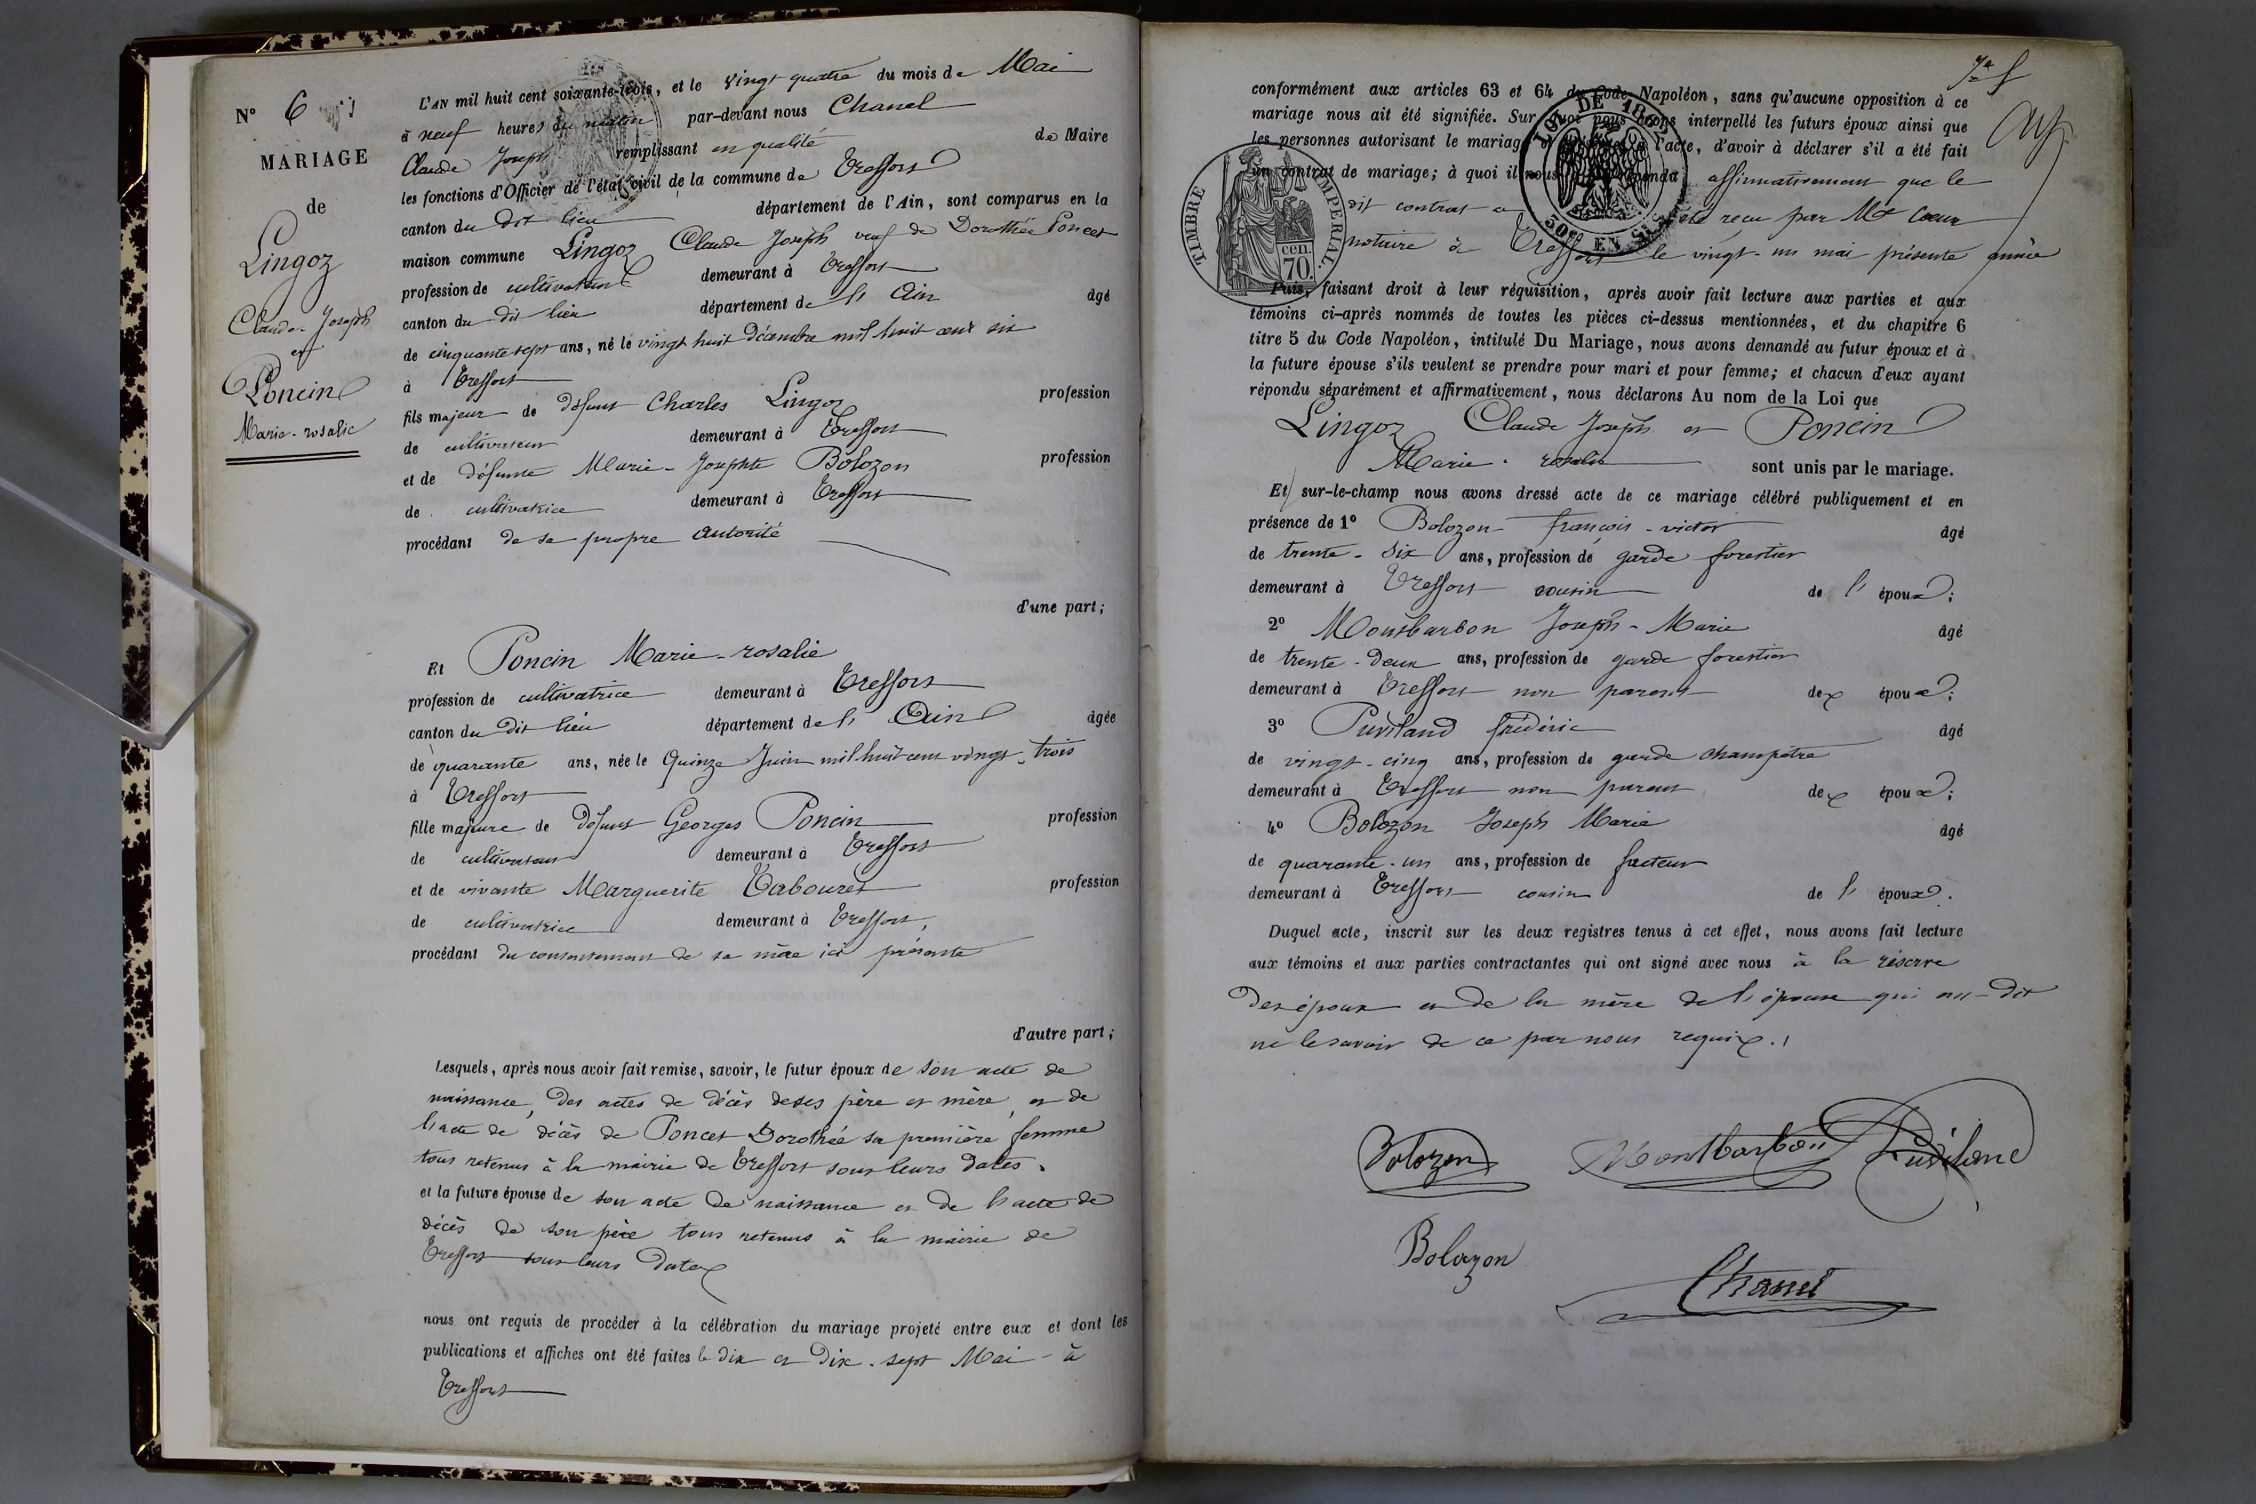 N° 6
MARIAGE
de
Lingoz
Claude-Joseph
et
Poncin
Marie-rosalie
L'AN mil huit cent soixante-trois, et le vingt quatre du mois de Mai
à neuf heures du matin par-devant nous Chanel
Claude Joseph remplissant en qualité de Maire
les fonctions d'Officier de l'état civil de la commune de Treffort
canton du dit lieu département de l'Ain, sont comparus en la
maison commune Lingoz Claude Joseph veuf de Dorothée Poncet
profession de cultivateur demeurant à Treffort
canton du dit lieu département de l' Ain âgé
de cinquante sept ans, né le vingt huit décembre mil huit cent six
à Treffort
fils majeur de défunt Charles Lingoz profession
de cultivateur demeurant à Treffort
et de défunte Marie-Josephte Bolozon profession
de cultivatrice demeurant à Treffort
procédant de sa propre autorité
d'une part;
Et Poncin Marie-rosalie
profession de cultivatrice demeurant à Treffort
canton du dit lieu département de l' Ain âgée
de quarante ans, née le Quinze Juin mil huit cent vingt-trois
à Treffort
fille majeure de défunt Georges Poncin profession
de cultivateur demeurant à Treffort
et de vivante Marguerite Tabouret profession
de cultivatrice demeurant à Treffort,
procédant du consentement de sa mère ici présente
d'autre part;
Lesquels, après nous avoir fait remise, savoir, le futur époux de son acte de
naissance, des actes de décès de ses père et mère, et de
l'acte de décès de Poncet Dorothée sa première femme
tous retenus à la mairie de Treffort sous leurs dates.
et la future épouse de son acte de naissance et de l'acte de
décès de son père tous retenus à la mairie de
Treffort sous leurs dates
nous ont requis de procéder à la célébration du mariage projeté entre eux et dont les
publications et affiches ont été faites le dix et dix-sept Mai à
Treffort
conformément aux articles 63 et 64 du Code Napoléon, sans qu'aucune opposition à ce
mariage nous ait été signifiée. Sur quoi nous avons interpellé les futurs époux ainsi que
les personnes autorisant le mariage l'acte, d'avoir à déclarer s'il a été fait
un contrat de mariage; à quoi il nous affirmativement que le
dit contrat a été reçu par Me Coeur
notaire à Treffort le vingt-un mai présente année
LOI DE 1862
50e EN SUS
TIMBRE IMPERIAL.
70 cen.
Puis, faisant droit à leur réquisition, après avoir fait lecture aux parties et aux
témoins ci-après nommés de toutes les pièces ci-dessus mentionnées, et du chapitre 6
titre 5 du Code Napoléon, intitulé Du Mariage, nous avons demandé au futur époux et à
la future épouse s'ils veulent se prendre pour mari et pour femme; et chacun d'eux ayant
répondu séparément et affirmativement, nous déclarons Au nom de la Loi que
Lingoz Claude Joseph et Poncin
Marie-rosalie sont unis par le mariage.
Et sur-le-champ nous avons dressé acte de ce mariage célébré publiquement et en
présence de 1° Bolozon françois-victor âgé
de trente-six ans, profession de garde forestier
demeurant à Treffort cousin de l' époux;
2° Montbarbon Joseph-Marie âgé
de trente-deux ans, profession de garde forestier
demeurant à Treffort non parent des époux;
3° Puvilland frédéric âgé
de vingt-cinq ans, profession de garde champêtre
demeurant à Treffort non parent des époux;
4° Bolozon Joseph Marie âgé
de quarante-un ans, profession de facteur
demeurant à Treffort cousin de l' époux.
Duquel acte, inscrit sur les deux registres tenus à cet effet, nous avons fait lecture
aux témoins et aux parties contractantes qui ont signé avec nous à la réserve
des époux et de la mère de l'épouse qui ont dit
ne le savoir de ce par nous requis.
Bolozon Montbarbon Puvilland
Bolozon
Chanel